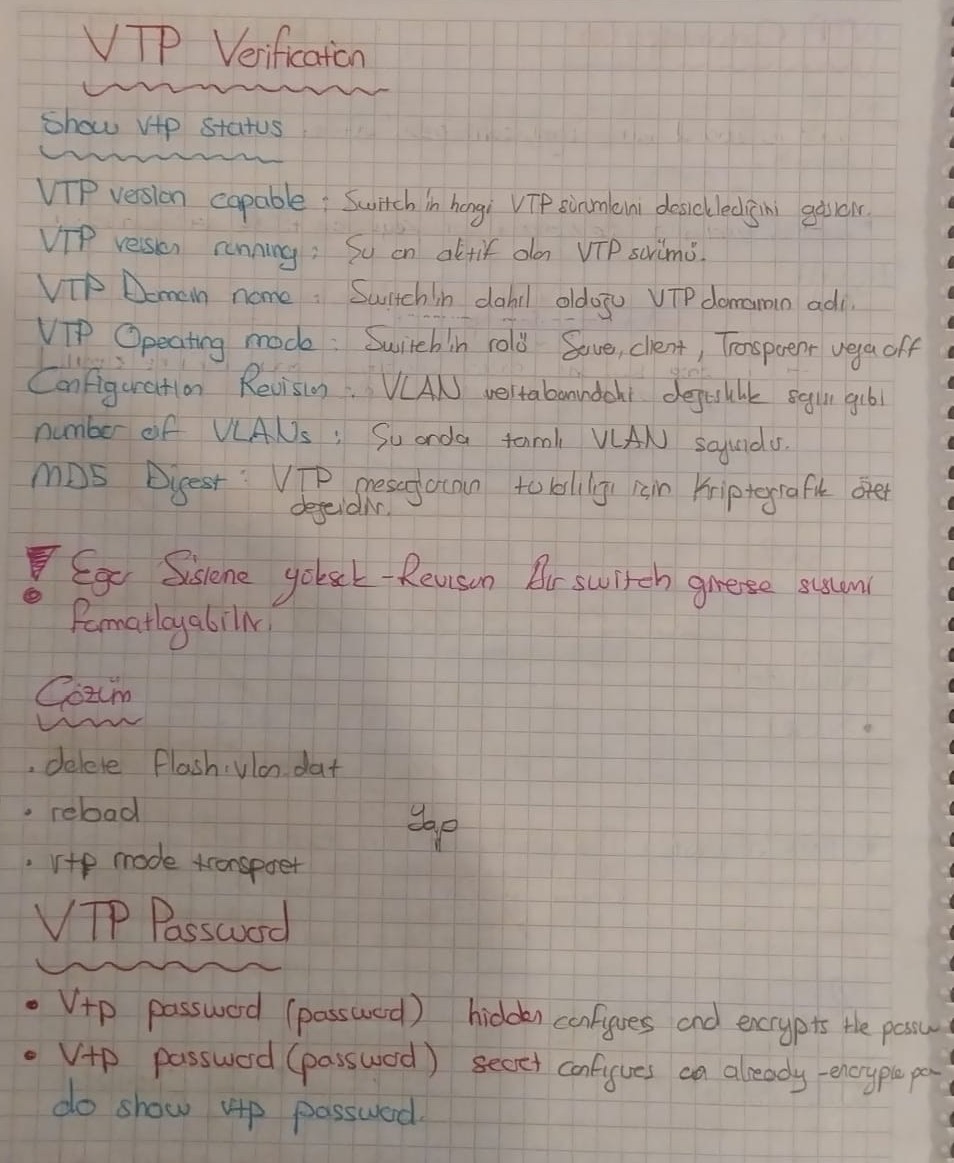 VTP Verification
Show vtp status
VTP version capable : Switch'in hangi VTP sürümlerini desteklediğini gösterir.
VTP version running : Şu an aktif olan VTP sürümü.
VTP Domain name : Switch'in dahil olduğu VTP domainin adı.
VTP Operating mode : Switch'in rolü Server, client, Transparent veya off
Configuration Revision : VLAN veritabanındaki değişiklik sayısı gibi
number of VLANs : Şu anda tanımlı VLAN sayısıdır.
MD5 Digest : VTP mesajlarının tutarlılığı için Kriptografik özet
değeridir.
! Eğer Sisteme yüksek-Revision Bir switch girerse sistemi
formatlayabilir.
Çözüm
. delete flash:vlan.dat
• reload
Yap
• vtp mode transparet
VTP Password
• Vtp password (password) hidden configures and encrypts the passw
• Vtp password (password) secret configures an already-encrypte pa
do show vtp password.